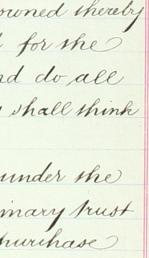 owned thereby
for the
nd do all
shall think
under the
imary trust
purchase